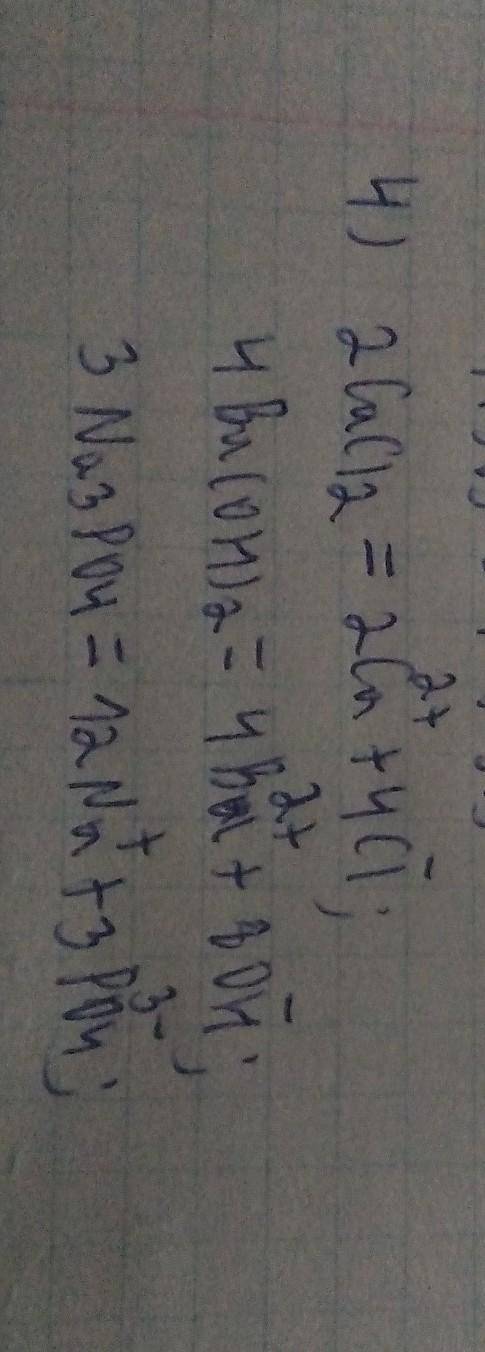 4) 2CaCl2 = 2Ca²⁺ + 4Cl⁻;
4Ba(OH)2 = 4Ba²⁺ + 8OH⁻;
3Na3PO4 = 12Na⁺ + 3PO4³⁻;